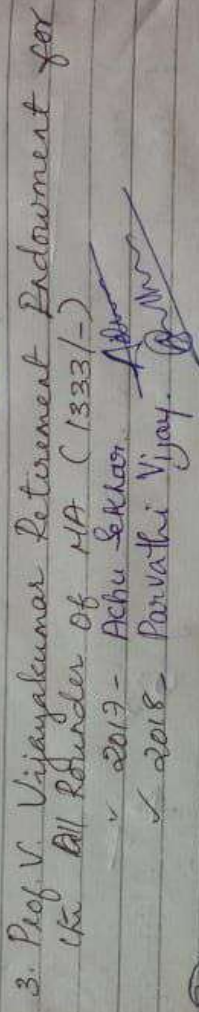 3. Prof. V. Vijayakumar Retirement Endowment for
the All Rounder Of MA (1333/-)
✓ 2017 - Achu Sekhar.
✓ 2018 - Parvathi Vijay.